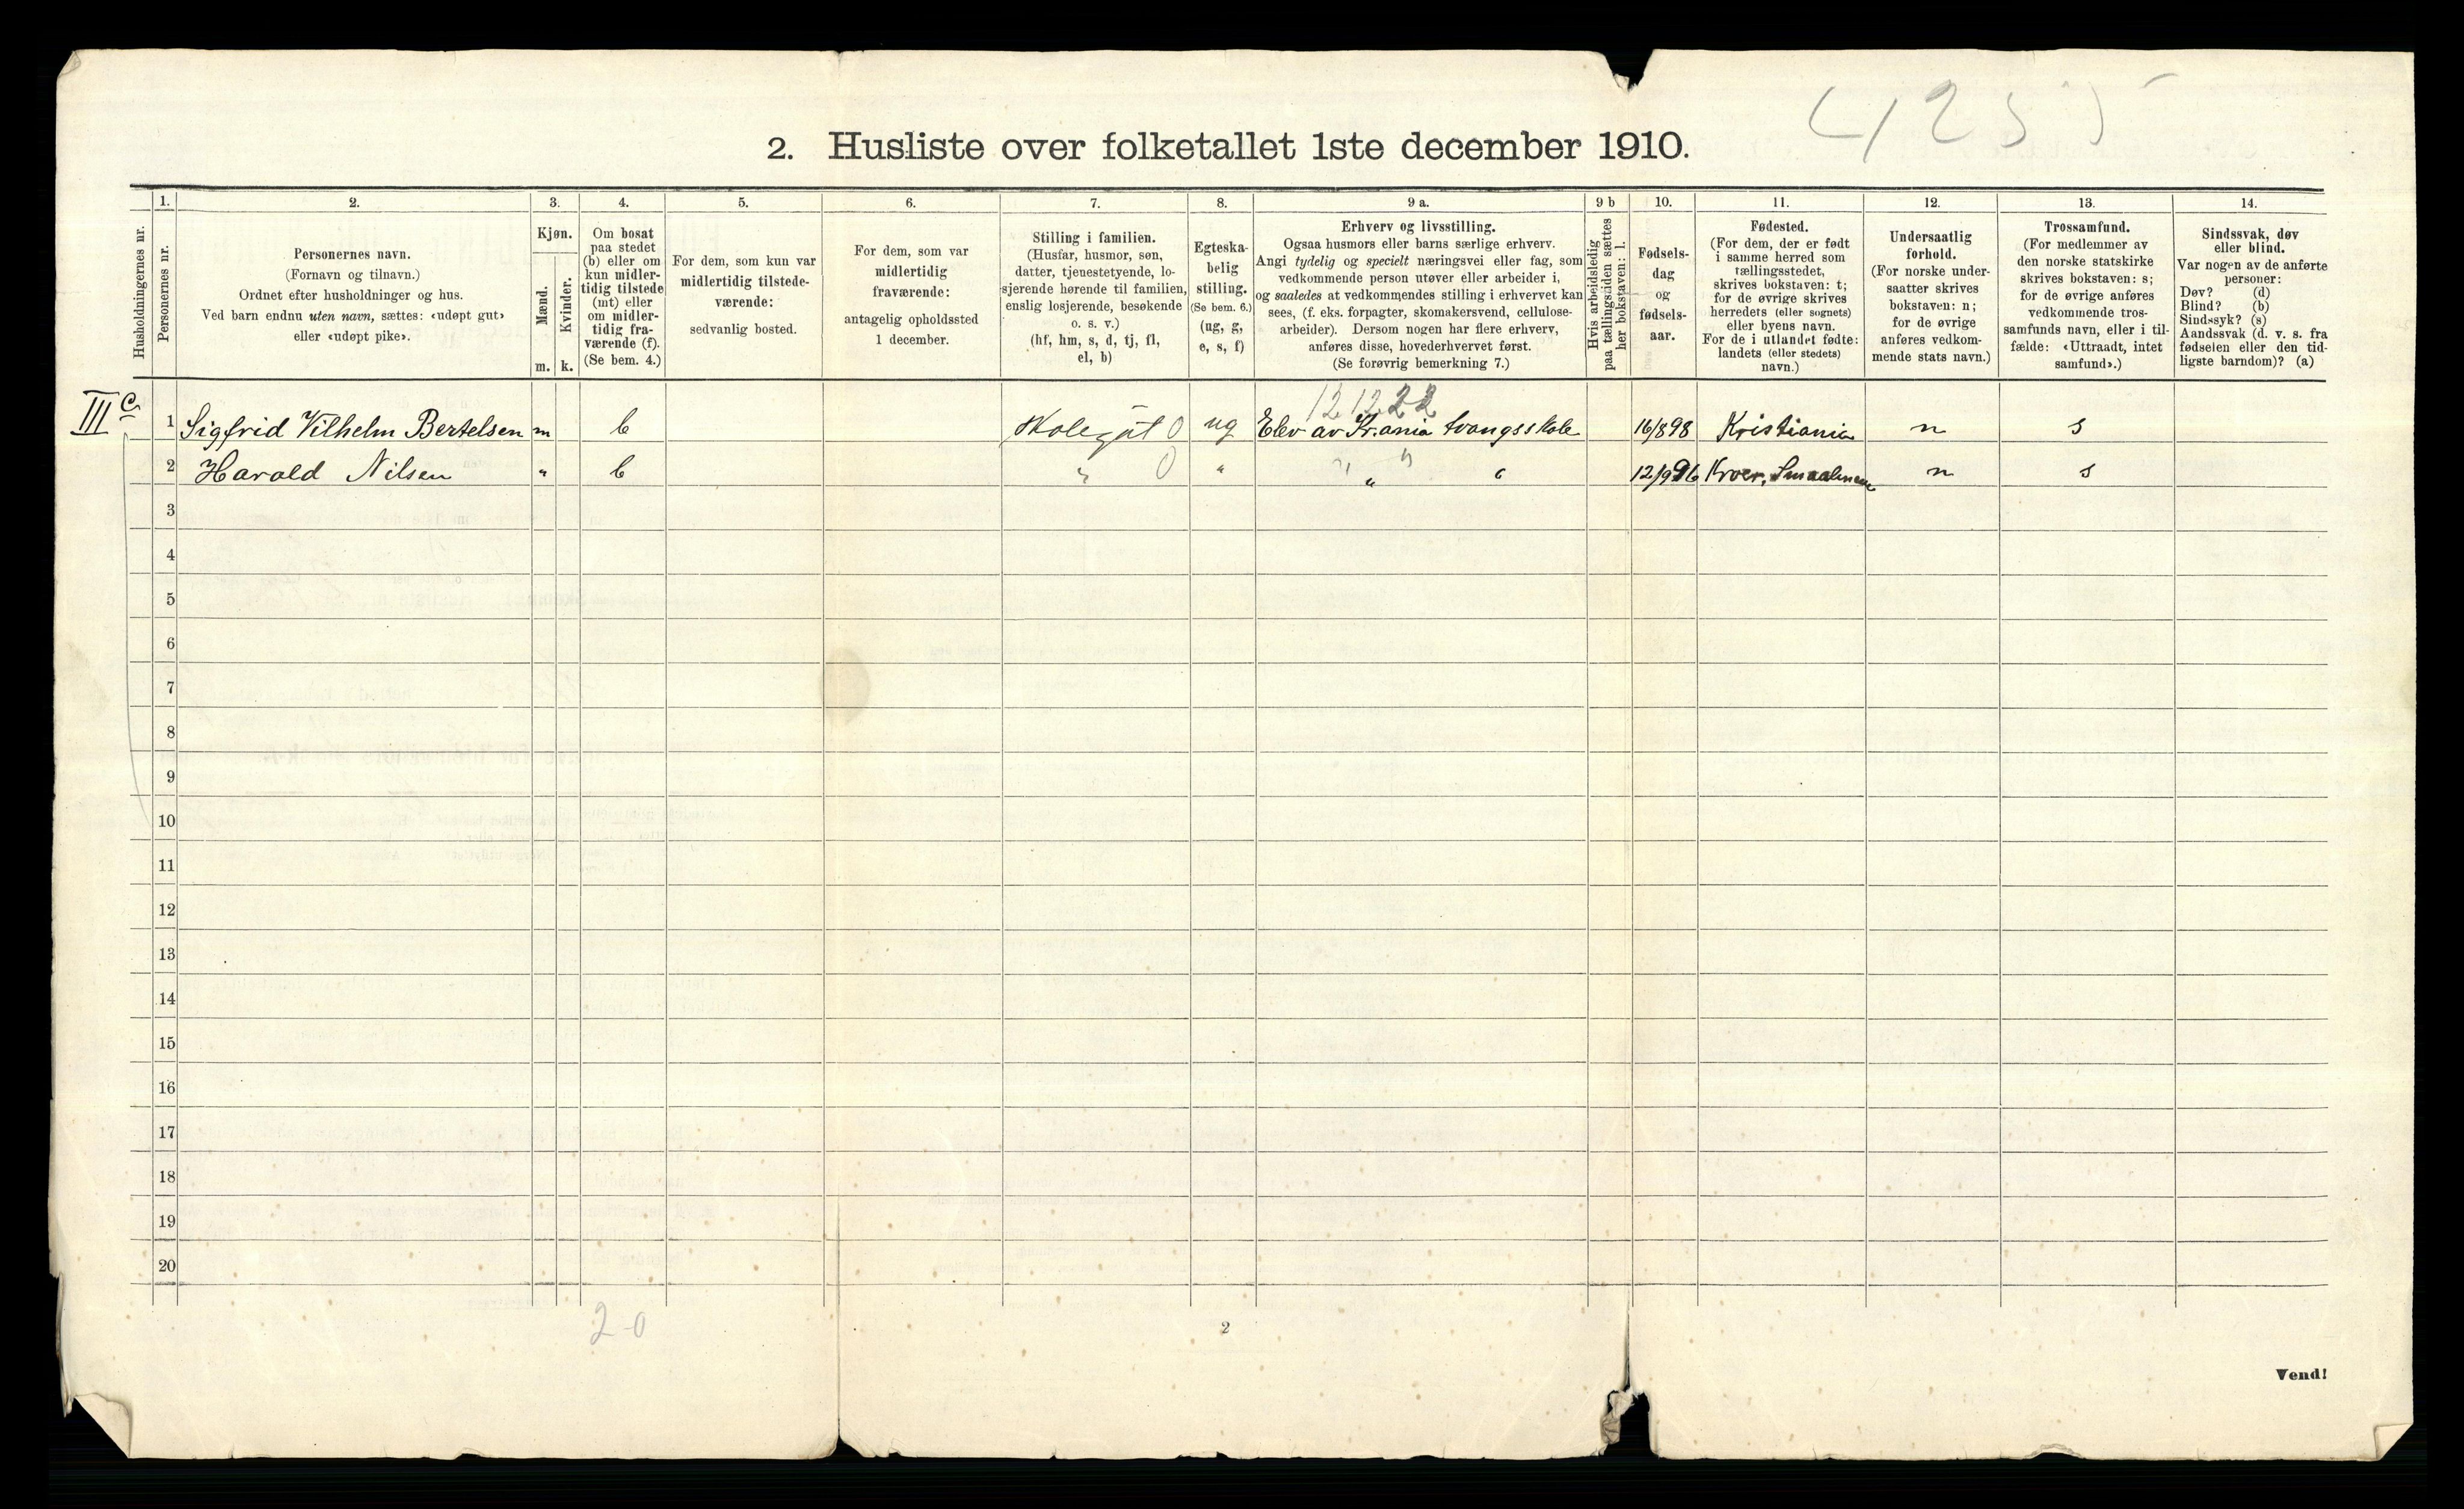 2. Husliste over folketallet 1ste december 1910.
Husholdningernes nr.
1.
Personernes nr.
2.
Personernes navn.
(Fornavn og tilnavn.)
Ordnet efter husholdninger og hus.
Ved barn endnu uten navn, sættes: «udøpt gut»
eller «udøpt pike».
3.
Kjøn.
Mænd.
Kvinder.
m. k.
4.
Om bosat
paa stedet
(b) eller om
kun midler-
tidig tilstede
(mt) eller
om midler-
tidig fra-
værende (f).
(Se bem. 4.)
5.
For dem, som kun var
midlertidig tilstede-
værende:
sedvanlig bosted.
6.
For dem, som var
midlertidig
fraværende:
antagelig opholdssted
1 december.
7.
Stilling i familien.
(Husfar, husmor, søn,
datter, tjenestetyende, lo-
sjerende hørende til familien,
enslig losjerende, besøkende
o. s. v.)
(hf, hm, s, d, tj, fl,
el, b)
8.
Egteska-
belig
stilling.
(Se bem. 6.)
(ug, g,
e, s, f)
9 a.
Erhverv og livsstilling.
Ogsaa husmors eller barns særlige erhverv.
Angi tydelig og specielt næringsvei eller fag, som
vedkommende person utøver eller arbeider i,
og saaledes at vedkommendes stilling i erhvervet kan
sees, (f. eks. forpagter, skomakersvend, cellulose-
arbeider). Dersom nogen har flere erhverv,
anføres disse, hovederhvervet først.
(Se forøvrig bemerkning 7.)
9 b
Hvis arbeidsledig
paa tællingstiden sættes
her bokstaven: l.
10.
Fødsels-
dag
og
fødsels-
aar.
11.
Fødested.
(For dem, der er født
i samme herred som
tællingsstedet,
skrives bokstaven: t;
for de øvrige skrives
herredets (eller sognets)
eller byens navn.
For de i utlandet fødte:
landets (eller stedets)
navn.)
12.
Undersaatlig
forhold.
(For norske under-
saatter skrives
bokstaven: n;
for de øvrige
anføres vedkom-
mende stats navn.)
13.
Trossamfund.
(For medlemmer av
den norske statskirke
skrives bokstaven: s;
for de øvrige anføres
vedkommende tros-
samfunds navn, eller i til-
fælde: «Uttraadt, intet
samfund».)
14.
Sindssvak, døv
eller blind.
Var nogen av de anførte
personer:
Døv? (d)
Blind? (b)
Sindssyk? (s)
Aandssvak (d. v. s. fra
fødselen eller den tid-
ligste barndom)? (a)
121222
III c 1 Sigfrid Vilhelm Bertelsen m b Skolegut 0 ug Elev av Kr.ania tvangsskole 16/8 98 Kristiania n s
2 Harald Nilsen " b " 0 " " " " 12/9 96 Kroer, Smaalenene n s
3
4
5
6
7
8
9
10
11
12
13
14
15
16
17
18
19
20
2-0
2
Vend!